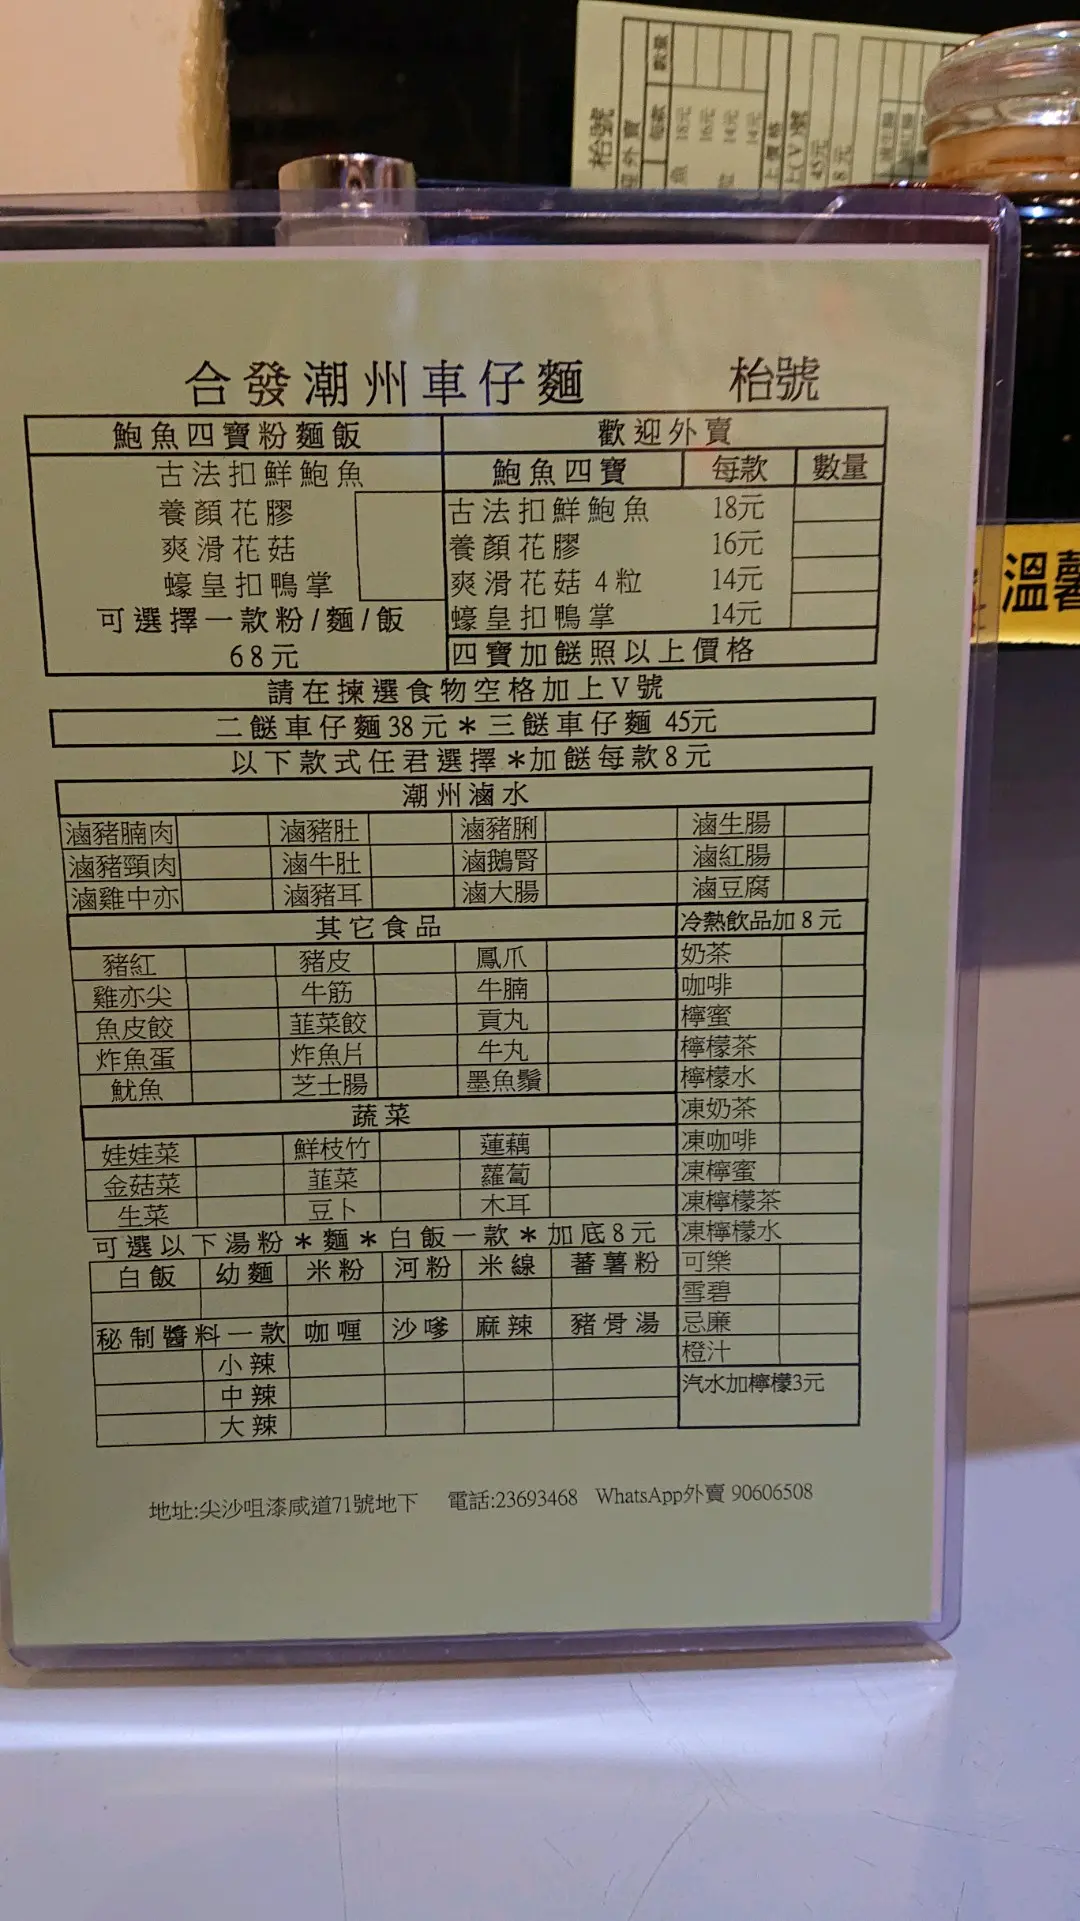 枱號
數量
每款
18元
16元
14元
14元
45元
8元
溫馨
合發潮州車仔麵 枱號
鮑魚四寶粉麵飯 歡迎外賣
古法扣鮮鮑魚 鮑魚四寶 每款 數量
養顏花膠 古法扣鮮鮑魚 18元
爽滑花菇 養顏花膠 16元
蠔皇扣鴨掌 爽滑花菇 4粒 14元
可選擇一款粉/麵/飯 蠔皇扣鴨掌 14元
68元 四寶加餸照以上價格
請在揀選食物空格加上V號
二餸車仔麵38元*三餸車仔麵 45元
以下款式任君選擇*加餸每款8元
潮州滷水
滷豬腩肉 滷豬肚 滷豬脷 滷生腸
滷豬頸肉 滷牛肚 滷鵝腎 滷紅腸
滷雞中亦 滷豬耳 滷大腸 滷豆腐
其它食品 冷熱飲品加8元
豬紅 豬皮 鳳爪 奶茶
雞亦尖 牛筋 牛腩 咖啡
魚皮餃 韮菜餃 貢丸 檸蜜
炸魚蛋 炸魚片 牛丸 檸檬茶
魷魚 芝士腸 墨魚鬚 檸檬水
蔬菜 凍奶茶
娃娃菜 鮮枝竹 蓮藕 凍咖啡
金菇菜 韮菜 蘿蔔 凍檸蜜
生菜 豆卜 木耳 凍檸檬茶
可選以下湯粉*麵*白飯一款*加底8元 凍檸檬水
白飯 幼麵 米粉 河粉 米線 蕃薯粉 可樂
雪碧
秘制醬料一款 咖喱 沙嗲 麻辣 豬骨湯 忌廉
小辣 橙汁
中辣 汽水加檸檬3元
大辣
地址:尖沙咀漆咸道71號地下 電話:23693468 WhatsApp外賣 90606508